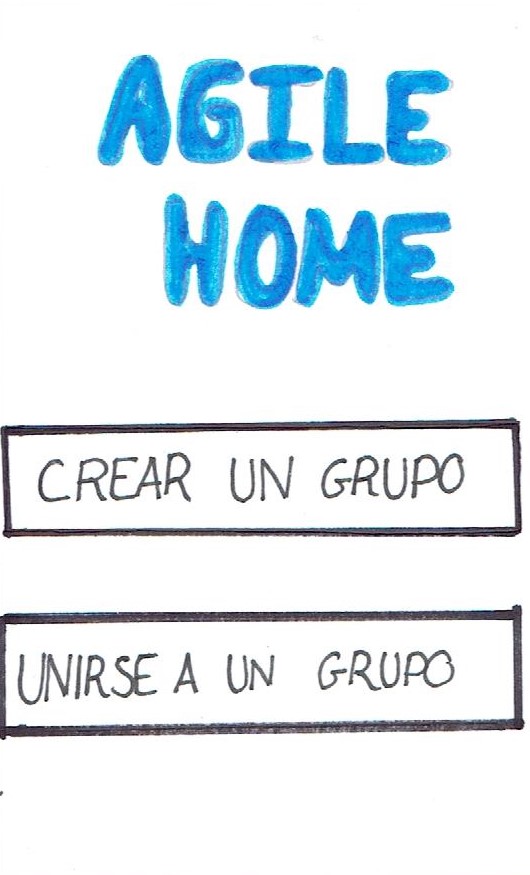 AGILE
HOME
CREAR UN GRUPO
UNIRSE A UN GRUPO